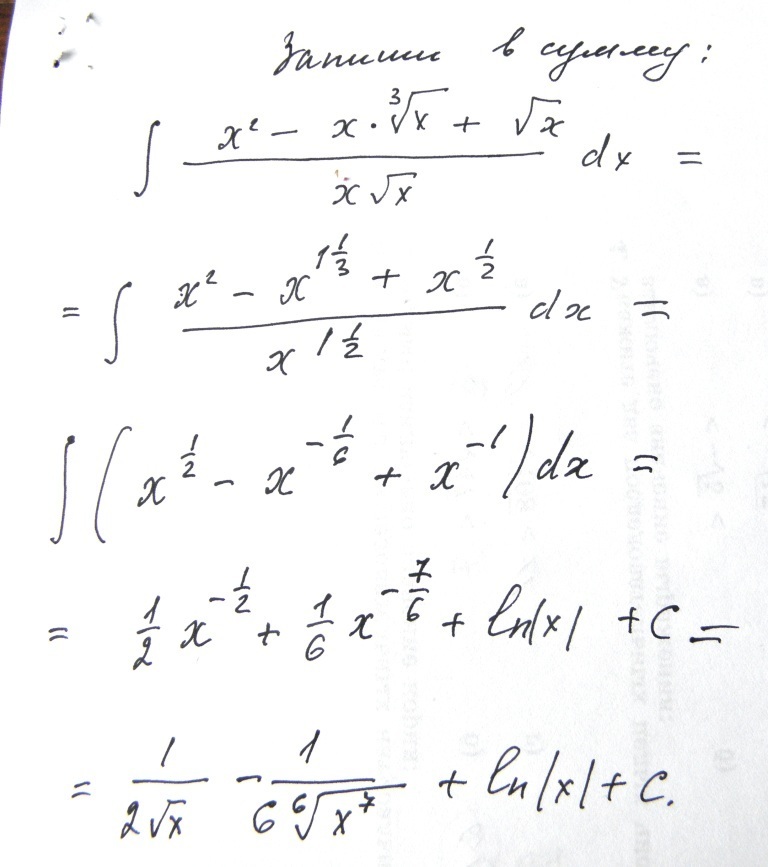 Запиши в сумму:
∫ (x² − x·∛x + √x)/(x√x) dx =
= ∫ (x² − x^(1 1/3) + x^(1/2))/(x^(1 1/2)) dx =
∫ (x^(1/2) − x^(−1/6) + x^(−1)) dx =
= 1/2 x^(−1/2) + 1/6 x^(−7/6) + ln|x| + C =
= 1/(2√x) − 1/(6 ⁶√(x⁷)) + ln|x| + C.